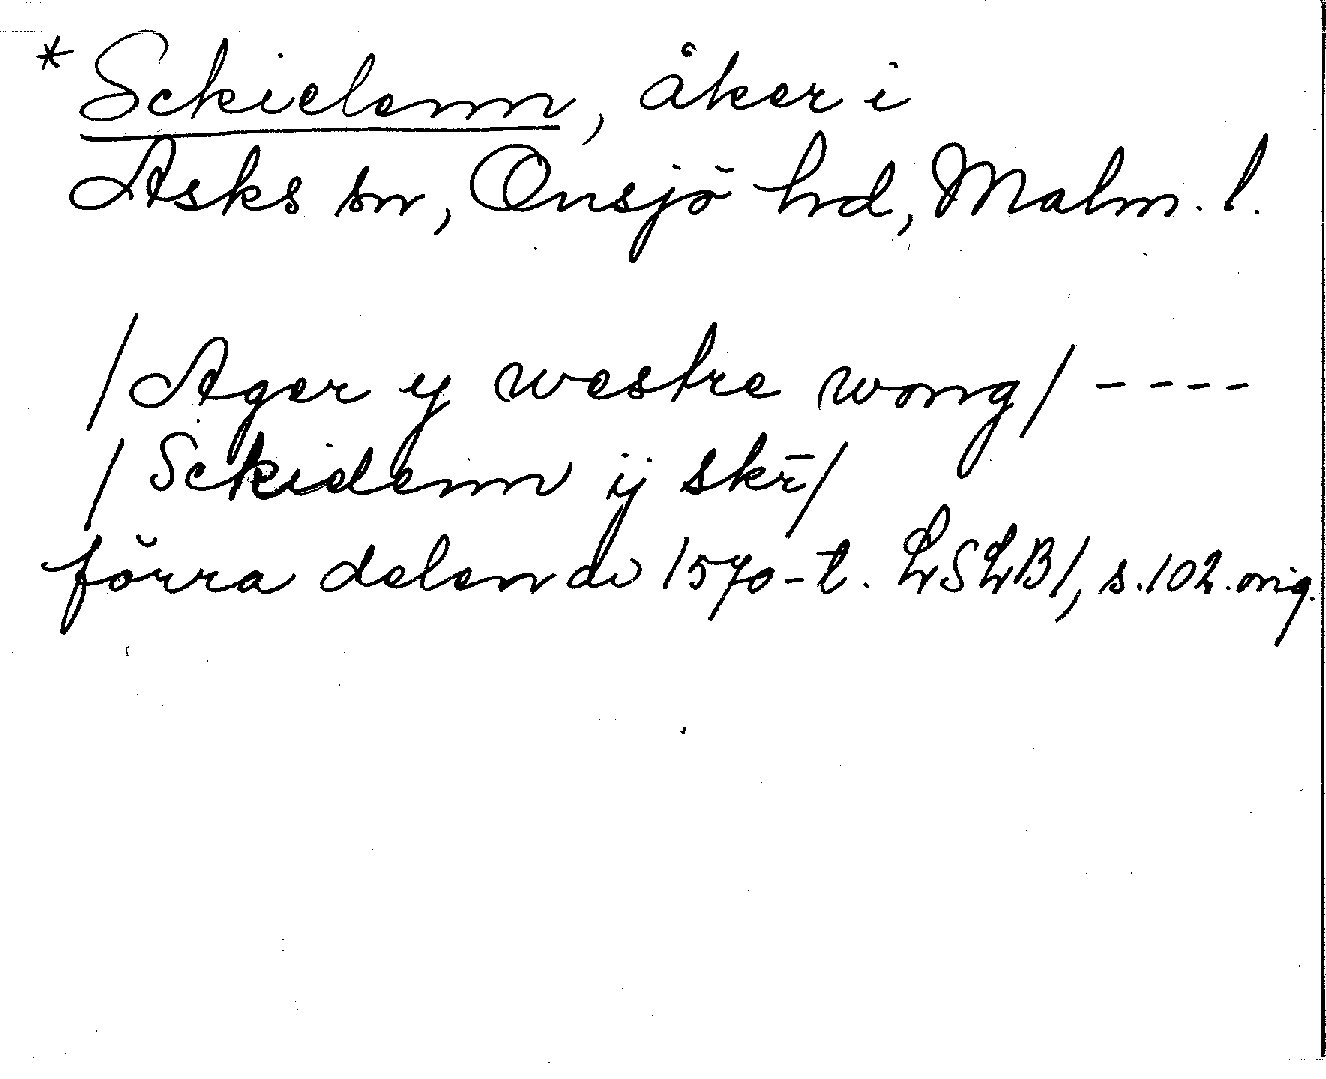 *Sckidenn, åker i
Asks sn, Onsjö hd, Malm. l.
/Ager y westre wong/ ----
/Sckidenn ij skr/
förra delen av 1570-t. LSLB1, s.102.orig.